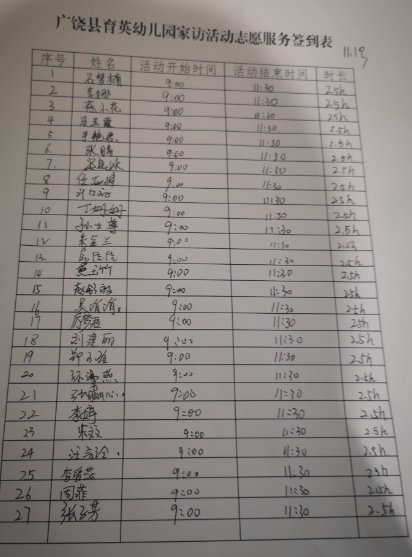 广饶县育英幼儿园家访活动志愿服务签到表
11.19
序号 姓名 活动开始时间 活动结束时间 时长
1 9:00 11:30 2.5h
2 李娜 9:00 11:30 2.5h
3 燕小花 9:00 11:30 2.5h
4 9:00 11:30 2.5h
5 李艳君 9:00 11:30 2.5h
6 张晴 9:00 11:30 2.5h
7. 9:00 11:30 2.5h
8 9:00 11:30 2.5h
9 9:00 11:30 2.5h
10 丁好好 9:00 11:30 2.5h
11 9:00 11:30 2.5h
12 9:00 11:30 2.5h
13 9:00 11:30 2.5h
14 9:00 11:30 2.5h
15 9:00 11:30 2.5h
16 吴倩倩 9:00 11:30 2.5h
17 9:00 11:30 2.5h
18 刘建丽 9:00 11:30 2.5h
19 9:00 11:30 2.5h
20 9:00 11:30 2.5h
21 9:00 11:30 2.5h
22 李婷 9:00 11:30 2.5h
23 宋文文 9:00 11:30 2.5h
24 9:00 11:30 2.5h
25 9:00 11:30 2.5h
26 周菲 9:00 11:30 2.5h
27 张玉芳 9:00 11:30 2.5h